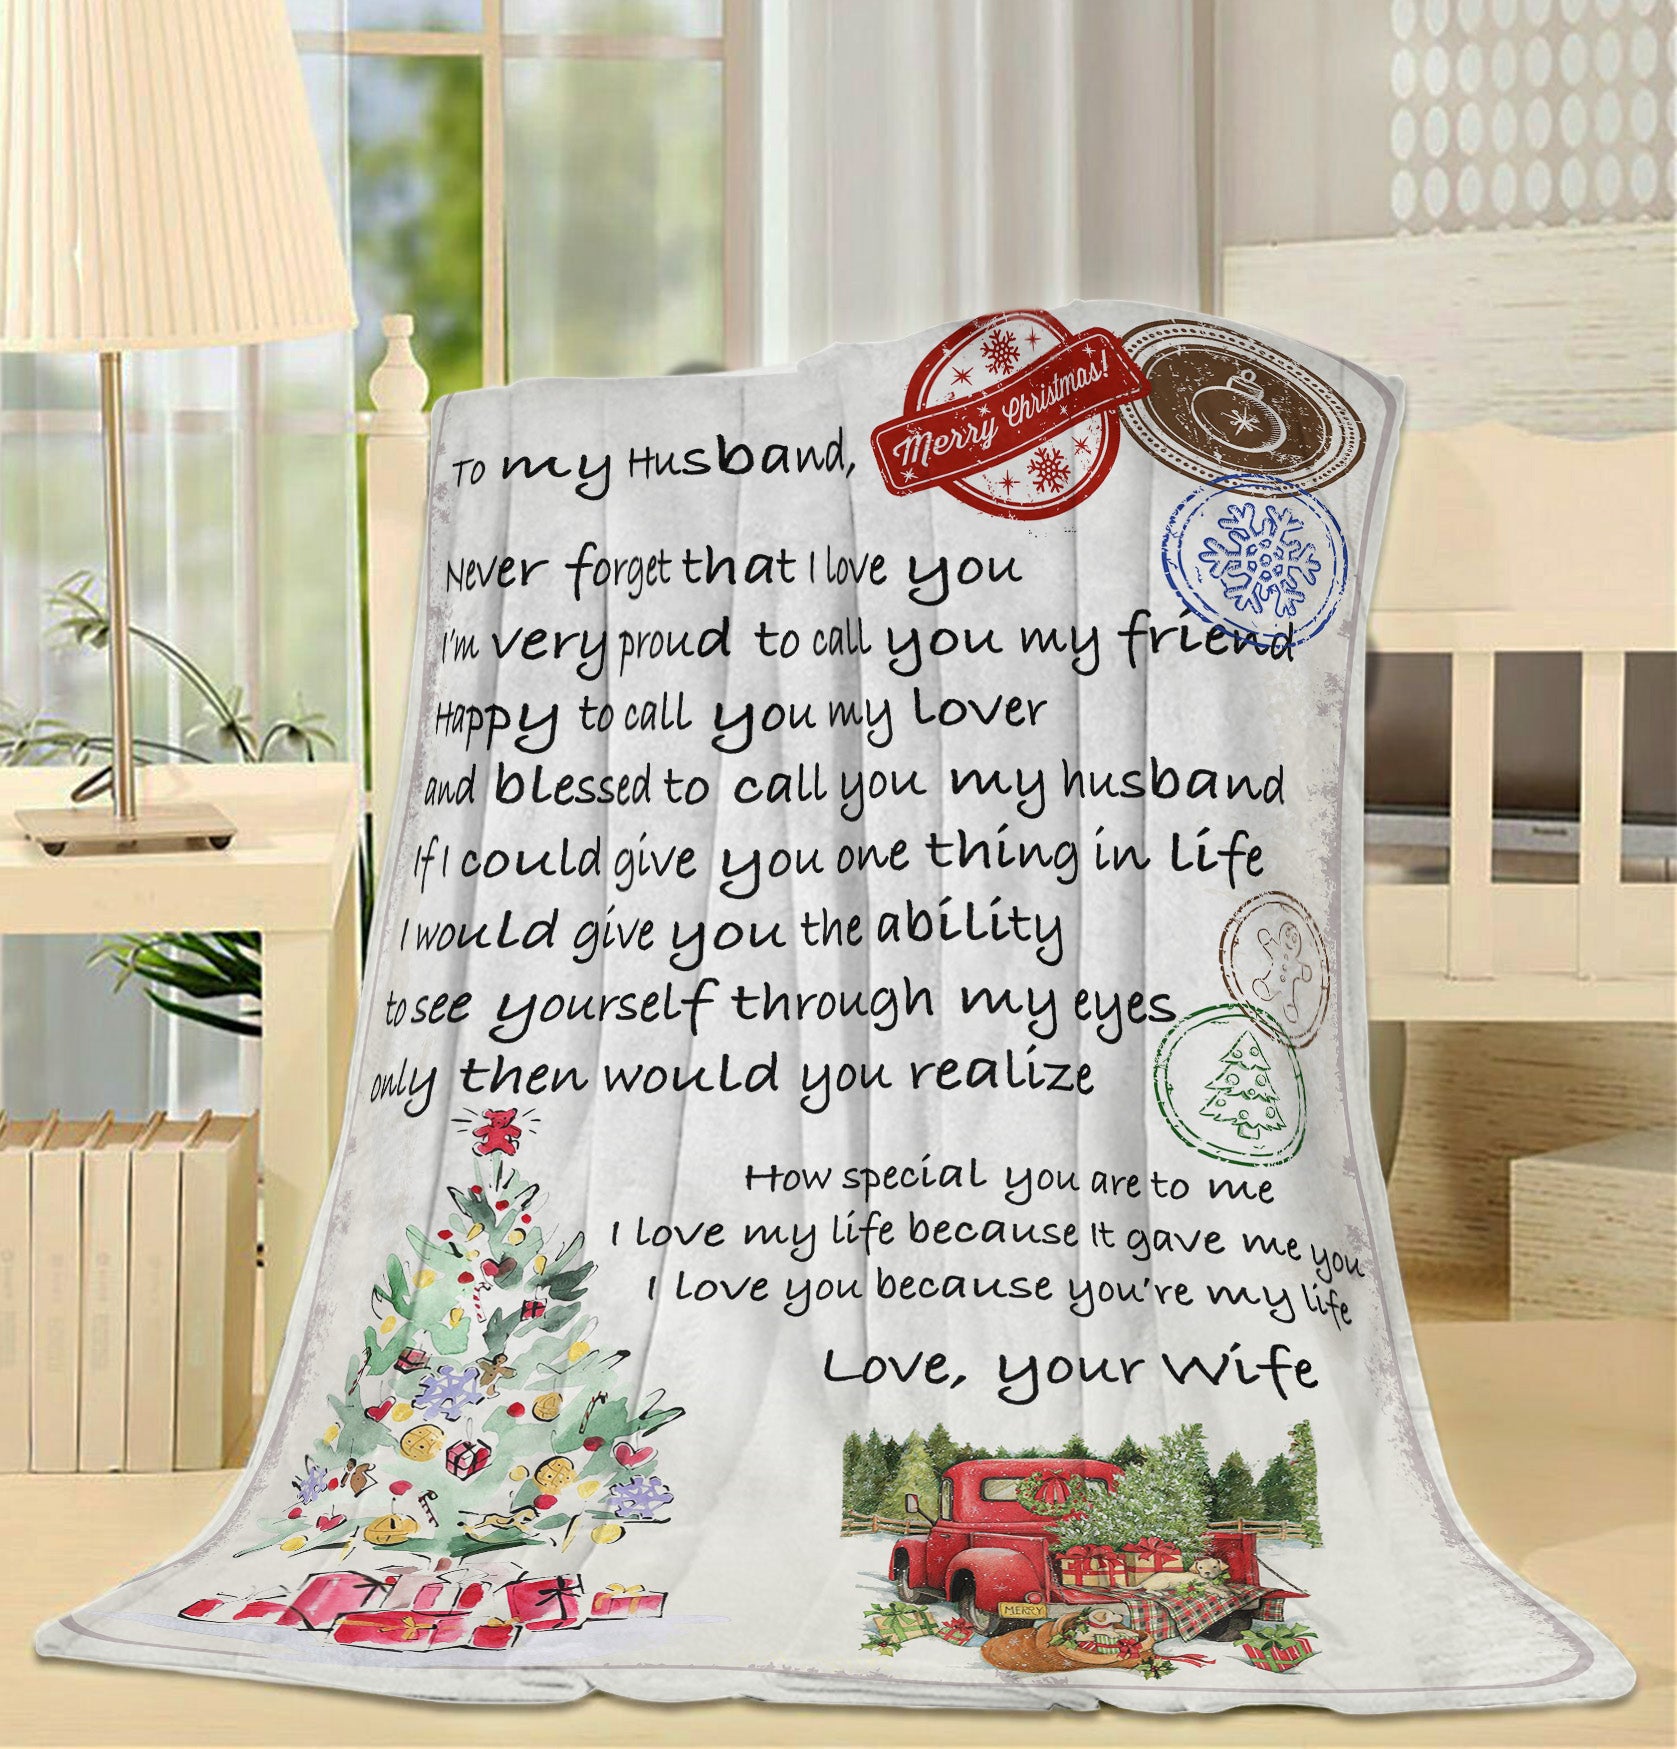 To my Husband,
Merry Christmas!
Never forget that I love you
I'm very proud to call you my friend
Happy to call you my Lover
and blessed to call you my husband
If I could give you one thing in life
I would give you the ability
to see yourself through my eyes
only then would you realize
How special you are to me
I love my life because It gave me you
I love you because you're my life
Love, your Wife
MERRY